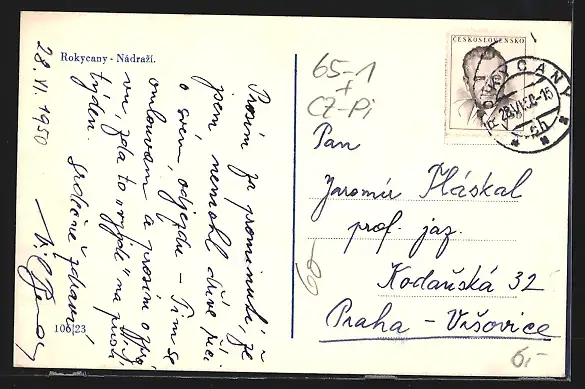 Rokycany - Nádraží.
28. VI. 1950
Prosím za prominutí, že
jsem nemohl dříve říci
o svém odjezdu - Tímse
omlouvám a prosím o zprá
vu, zda to "vyjde" na příští
týden.
Srdečně zdraví
106|23
65-1
+
CZ-Pi
ČESKOSLOVENSKO
ROKYCANY
28.VI.50-15
Pan
Jaromír Hláskal
prof. jaz.
Kodaňská 32
Praha - Vršovice
6,-